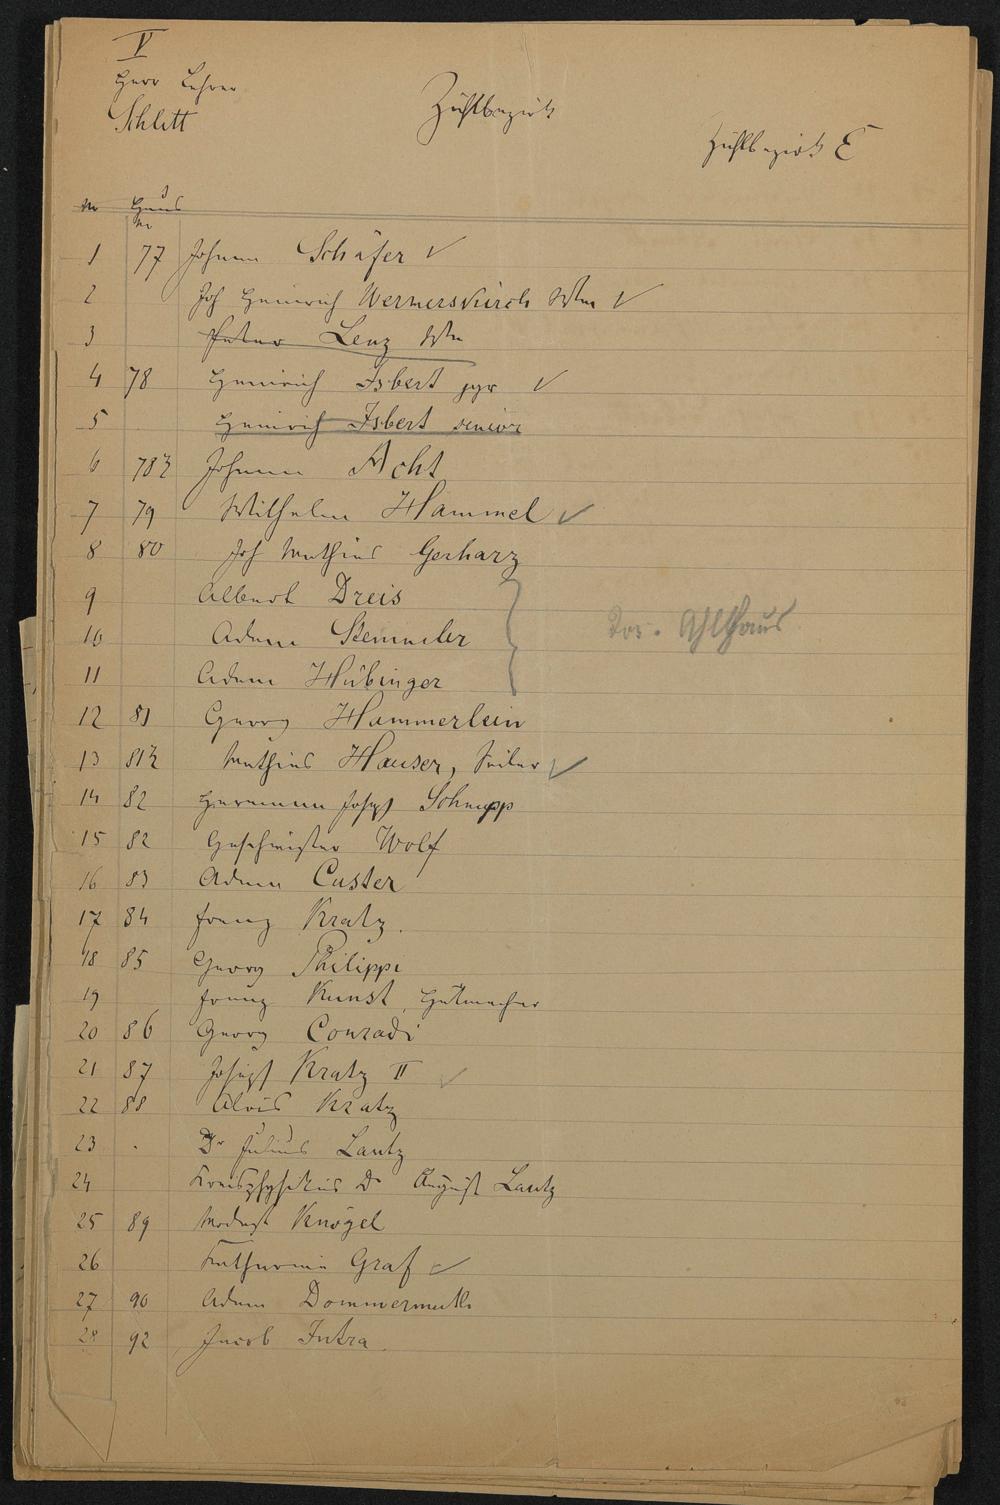 V
Herr Lehrer
Schlitt
Zählbezirk
Zählbezirk E
Nr Haus Nr
1 77 Johann Schäfer ✓
2 Joh Heinrich Wernerskirch Wtw ✓
3 Peter Lenz Wtw
4 78 Heinrich Isbert jgr ✓
5 Heinrich Isbert senior
6 78½ Johann Acht
7 79 Wilhelm Hammel ✓
8 80 Joh Mathias Gerharz
9 Albert Dreis
10 Adam Stemmler
11 Adam Hübinger
12 81 Georg Hammerlein
13 81½ Mathias Hauser, Seiler ✓
14 82 Hermann Josef Schnupp
15 82 Geschwister Wolf
16 83 Adam Custer
17 84 Franz Kratz.
18 85 Georg Philippi
19 Franz Kunst, Hutmacher
20 86 Georg Conradi
21 87 Josef Kratz II ✓
22 88 Alois Kratz
23 Dr Julius Lautz
24 Kreisphysikus Dr August Lautz
25 89 Modest Knögel
26 Katharina Graf ✓
27 90 Adam Dommermuth
28 92 Jacob Intra